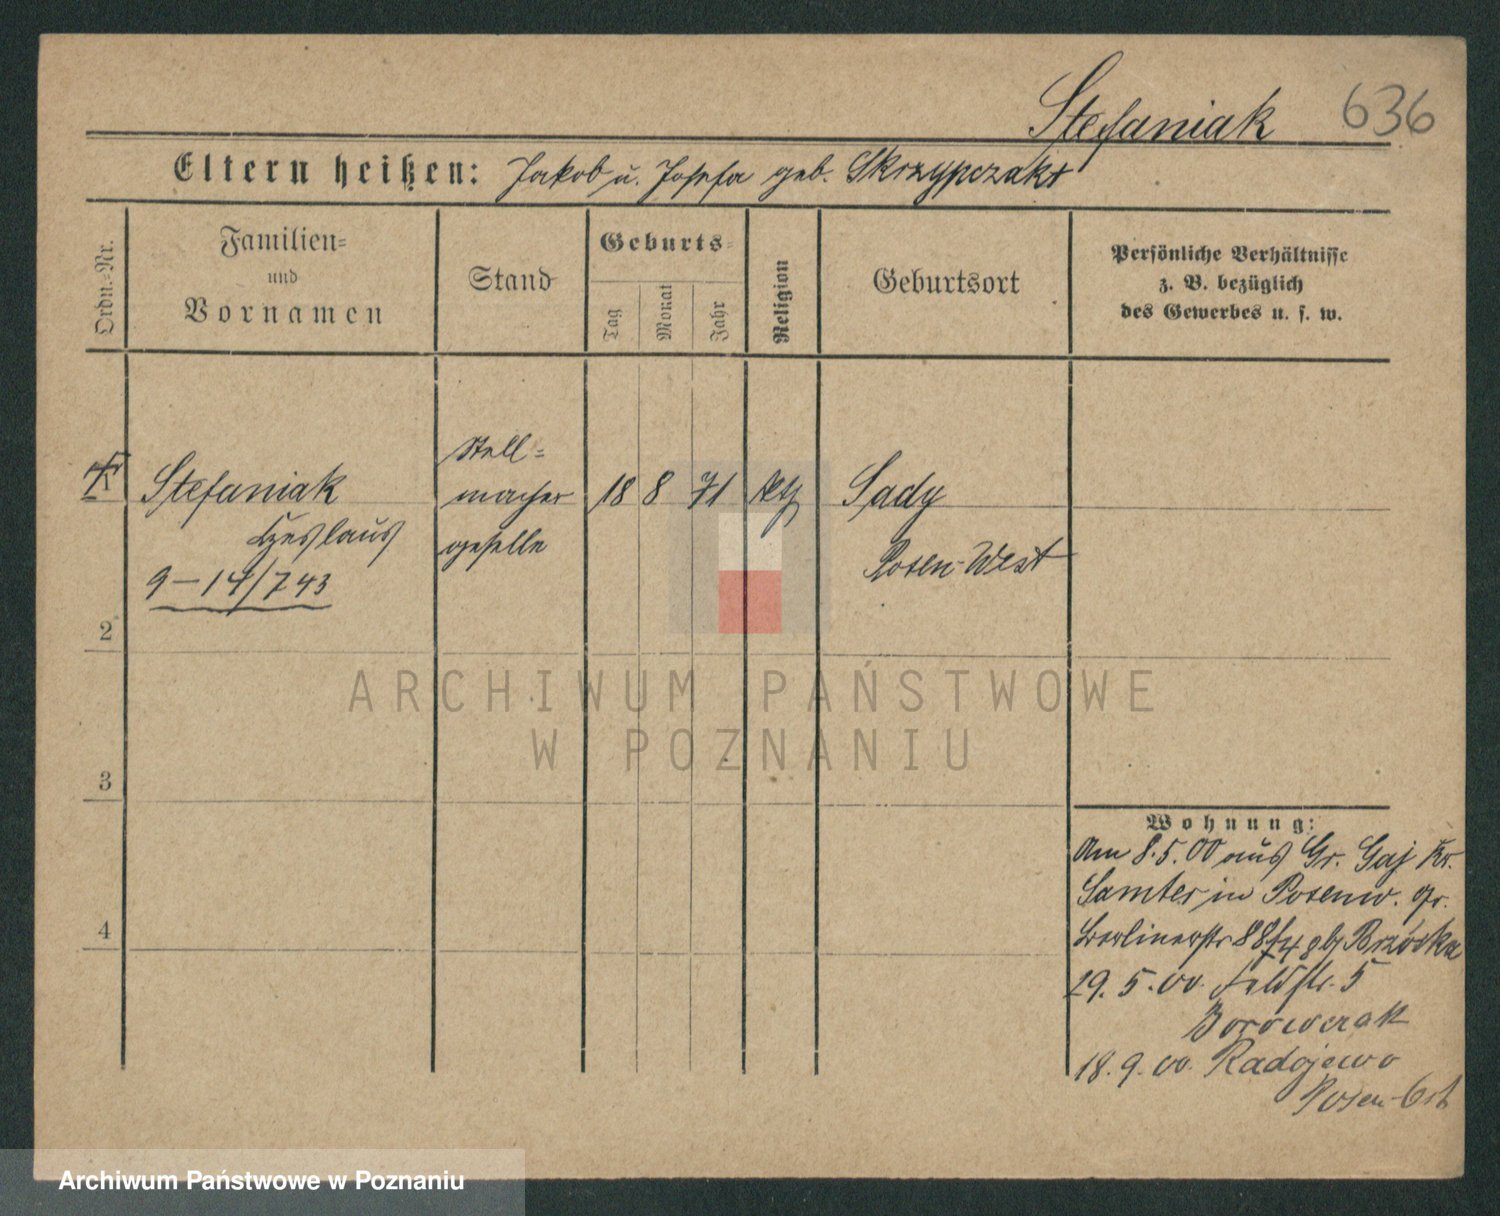 Stefaniak 636
Eltern heißen: Jakob u. Josefa geb. Skrzypczak
Ordn.-Nr.
Familien-
und
Vornamen
Stand
Geburts-
Tag
Monat
Jahr
Religion
Geburtsort
Persönliche Verhältnisse
z. B. bezüglich
des Gewerbes u. s. w.
1 Stefaniak
Stell-
macher
geselle
18 8 71
Sady
Posen-West
9-14/743
2
3
4
ARCHIWUM PAŃSTWOWE
W POZNANIU
Wohnung:
Am 8.5.00 aus Gr. Gaj Kr.
Samter in Posen
Berlinerstr 88
29.5.00. Feldstr. 5
Borowczak
18.9.00. Radojewo
Posen-Ost
Archiwum Państwowe w Poznaniu